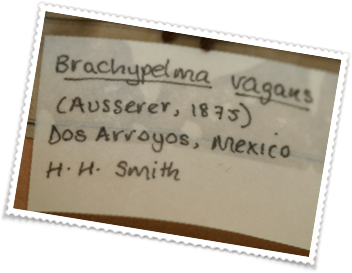 Brachypelma vagans
(Ausserer, 1875)
Dos Arroyos, Mexico
H. H. Smith